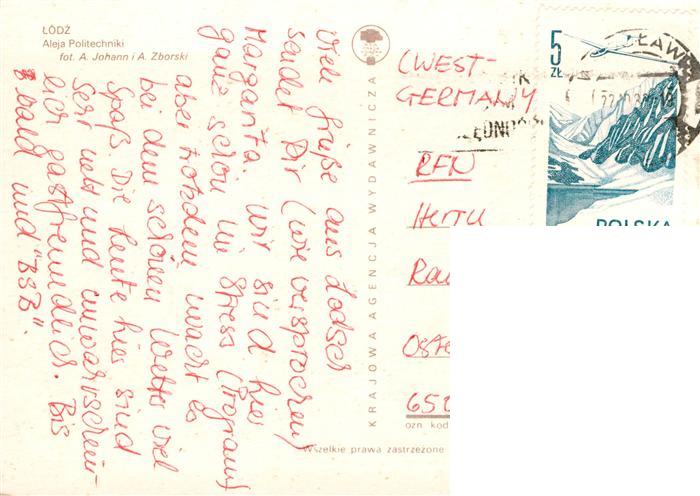 ŁÓDŹ
Aleja Politechniki
fot. A. Johann i A. Zborski
Viele Grüße aus Lodsch
sendet Dir (wie versprochen)
Margarita. Wir sind hier
ganz schön im Stress (Program)
aber trotzdem macht es
bei dem schönen Wetter viel
Spaß. Die Leute hier sind
sehr nett und unwahrschein-
lich gastfreundlich. Bis
bald und "BSB".
KRAJOWA AGENCJA WYDAWNICZA
(WEST-
GERMANY)
RFN
Herrn
Ra
Ost
652
ozn. kod
Wszelkie prawa zastrzeżone
5
ZŁ
POLSKA